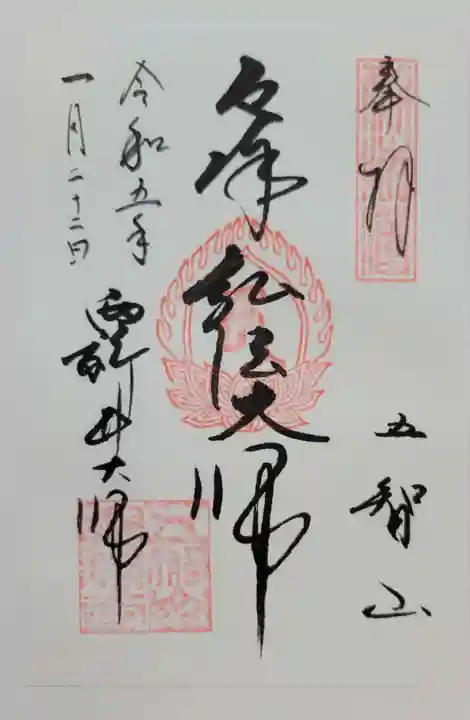 奉拝
五智山
厄除
弘法大師
令和五年
一月二十二日
西新井大師